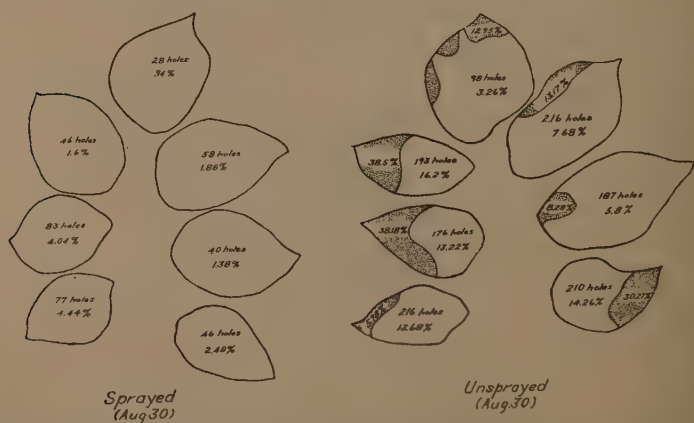 28 holes
.94%
46 holes
1.6%
58 holes
1.88%
83 holes
4.04%
40 holes
1.38%
77 holes
4.44%
46 holes
2.48%
Sprayed
(Aug.30)
12.95%
98 holes
3.26%
13.17%
216 holes
7.68%
38.5%
193 holes
16.2%
187 holes
5.8%
8.28%
38.18%
176 holes
13.22%
210 holes
14.26%
30.27%
216 holes
13.68%
Unsprayed
(Aug.30)